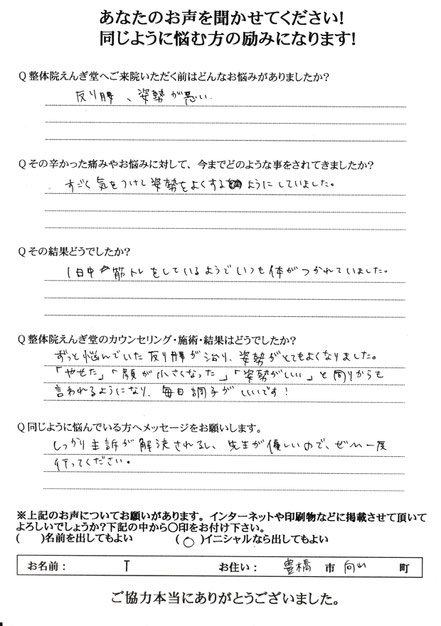 あなたのお声を聞かせてください!
同じように悩む方の励みになります!
Q 整体院えんぎ堂へご来院いただく前はどんなお悩みがありましたか?
反り腰、姿勢が悪い
Q その辛かった痛みやお悩みに対して、今までどのような事をされてきましたか?
すごく気をつけて姿勢をよくするようにしていました。
Q その結果どうでしたか?
1日中筋トレをしているようでいつも体がつかれていました。
Q 整体院えんぎ堂のカウンセリング・施術・結果はどうでしたか?
ずっと悩んでいた反り腰が治り、姿勢がとてもよくなりました。
「やせた」「顔が小さくなった」「姿勢がいい」と周りからも
言われるようになり、毎日調子がいいです!
Q 同じように悩んでいる方へメッセージをお願いします。
しっかり主訴が解決されるし、先生が優しいので、ぜひ一度
行ってください。
※上記のお声についてお願いがあります。インターネットや印刷物などに掲載させて頂いて
よろしいでしょうか?下記の中から○印をお付け下さい。
( )名前を出してもよい (○)イニシャルなら出してもよい
お名前: T お住い: 豊橋 市 向山 町
ご協力本当にありがとうございました。